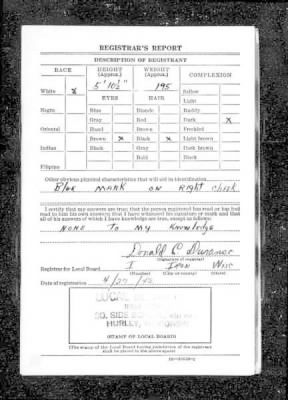 REGISTRAR'S REPORT
DESCRIPTION OF REGISTRANT
RACE HEIGHT (Approx.) WEIGHT (Approx.) COMPLEXION
5' 10½" 195
White X Sallow
EYES HAIR Light
Negro Blue Blonde Ruddy
Gray Red Dark X
Oriental Hazel Brown Freckled
Brown X Black X Light brown
Indian Black Gray Dark brown
Bald Black
Filipino
Other obvious physical characteristics that will aid in identification
MARK ON RIGHT Cheek
I certify that my answers are true; that the person registered has read or has had
read to him his own answers; that I have witnessed his signature or mark and that
all of his answers of which I have knowledge are true, except as follows:
NONE TO MY Knowledge
Donald C.
(Signature of registrar)
Registrar for Local Board 1 Iron Wisc
(Number) (City or county) (State)
Date of registration 4/27/42
LOCAL
SO. SIDE
HURLEY,
(STAMP OF LOCAL BOARD)
(The stamp of the Local Board having jurisdiction of the registrant
shall be placed in the above space)